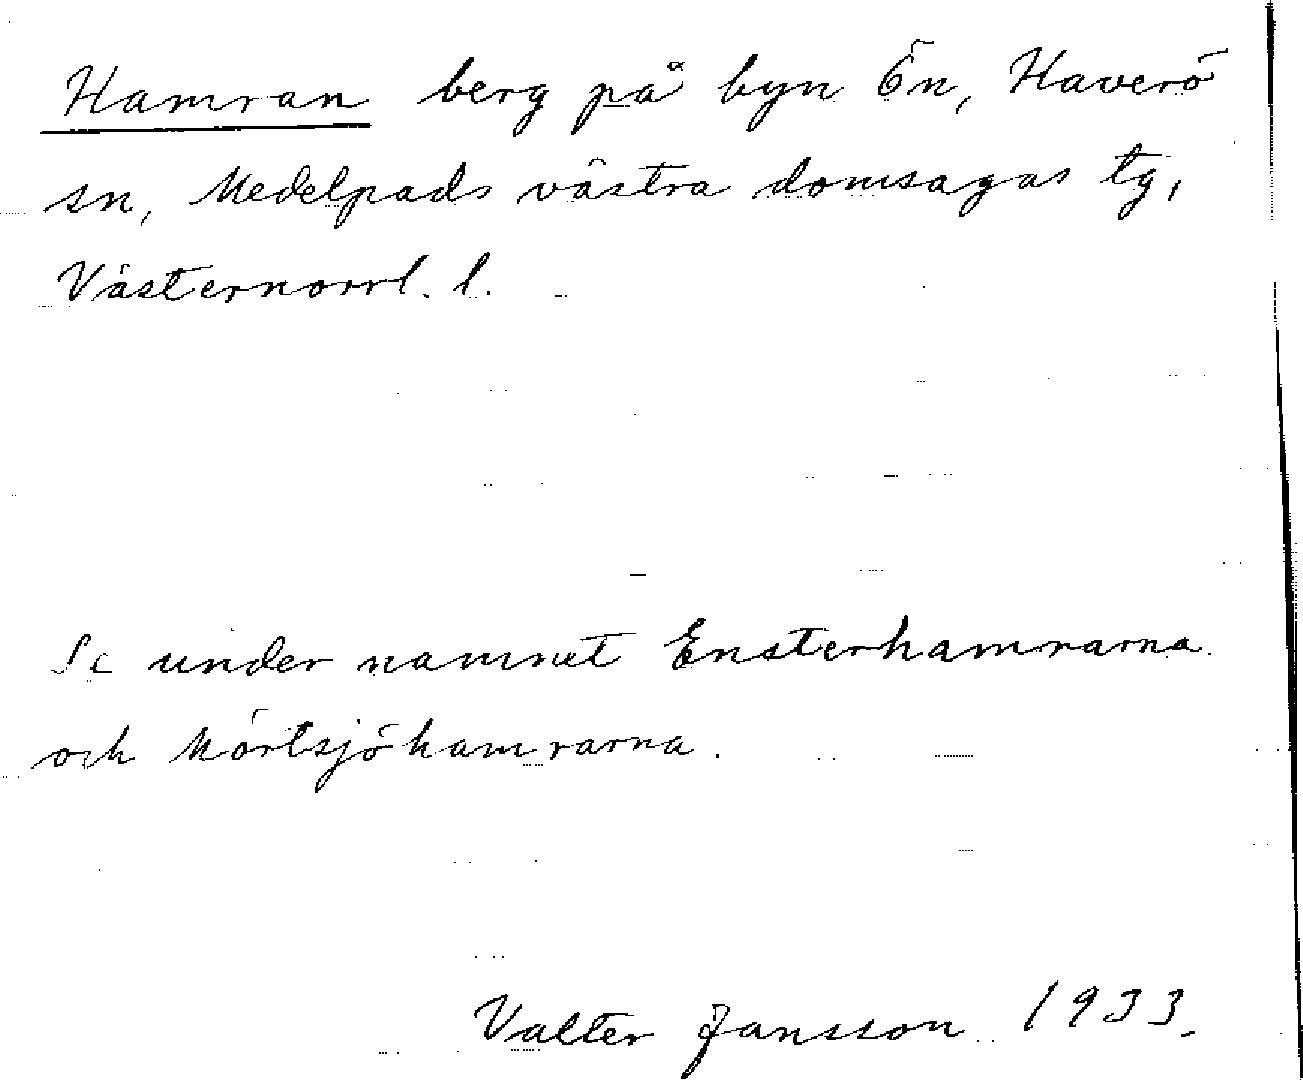 Hamran berg på byn Ön, Haverö
sn, Medelpads västra domsagas tg,
Västernorrl. l.
Se under namnet Ensterhamrarna
och Mörtsjöhamrarna.
Valter Jansson 1933.